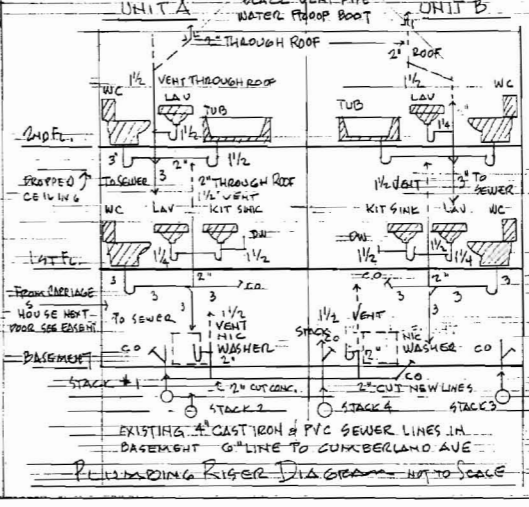 UNIT A
UNIT B
WATER PROOF BOOT
2" THROUGH ROOF
2" ROOF
1½ VENT THROUGH ROOF
WC
LAV
TUB
TUB
LAV
WC
1½
1¼
2ND FL.
3"
2"
1½
3
DROPPED CEILING
TO SEWER
3
2" THROUGH ROOF
1½" VENT
1½ VENT
3" TO SEWER
WC
LAV
KIT SINK
DW
KIT SINK
LAV.
WC
DW
1¼
1½
1½
1½
1¼
1ST FL.
3
3
2"
CO
CO
2"
3
3
FROM CARRIAGE
HOUSE NEXT
DOOR SEE EASEMT
TO SEWER
3
1½
VENT
NIC
WASHER
2"
1½
VENT
STACK
CO
NIC
WASHER
2"
3
TO SEWER
BASEMENT
CO
CO
CO
STACK #1
2" CUT CONC.
2" CUT NEW LINES
STACK 2
STACK 4
STACK 3
EXISTING 4" CAST IRON & PVC SEWER LINES IN
BASEMENT 6" LINE TO CUMBERLAND AVE
PLUMBING RISER DIAGRAM NOT TO SCALE